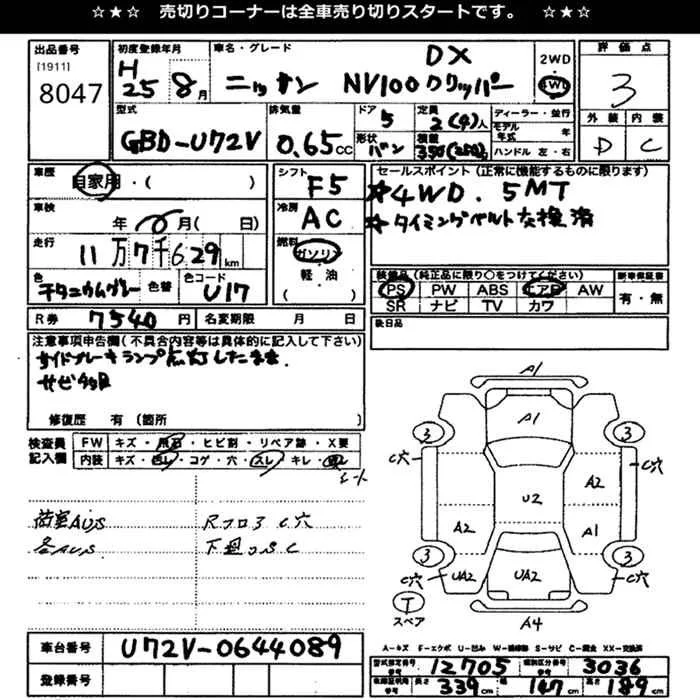 ☆ ★ ☆ 売切りコーナーは全車売り切りスタートです。 ☆ ★ ☆
出品番号
[1911]
8047
初度登録年月
H25年8月
車名・グレード
DX
ニッサン NV100クリッパー
2WD
4WD
評価点
3
外装 内装
D C
型式
GBD-U72V
排気量
0.65CC
ドア
5
形状
バン
定員
2(4)人
積載
350(250)
ディーラー・並行
モデル年式 年
ハンドル 左・右
車歴
自家用・( )
車検
年 月( 日)
走行
11万7千629km
色
チタニウムグレー
色替
色コード
U17
シフト
F5
冷房
AC
燃料
ガソリン
軽・油
( )
セールスポイント(正常に機能するものに限ります)
☆4WD. 5MT
☆タイミングベルト交換済
装備品(純正品に限り○をつけてください)
PS PW ABS エアB AW
SR ナビ TV カワ
新車保証書
有・無
後日品
R券 7540円
名変期限 月 日
注意事項申告欄(不具合内容等は具体的に記入して下さい)
サイドブレーキランプ点灯したまま.
サビ多目
修復歴 有(箇所 )
検査員記入欄
FW キズ・飛石・ヒビ割・リペア跡・X要
内装 キズ・・コゲ・穴・スレ・キレ・
シート
荷室AUS
各AUS
Rフロア C穴
下廻りSC
A1
A1
3
3
C穴
C穴
A2
U2
A2
A1
3
3
C穴
UA2
UA2
C穴
T
スペア
A4
車台番号
U72V-0644089
登録番号
A－キズ F－エクボ U－凹ミ W－補修跡 S－サビ C－腐食 XX－交換済
型式指定番号 12705
類別区分番号 3036
長さ 339cm
幅 147cm
高さ 189cm